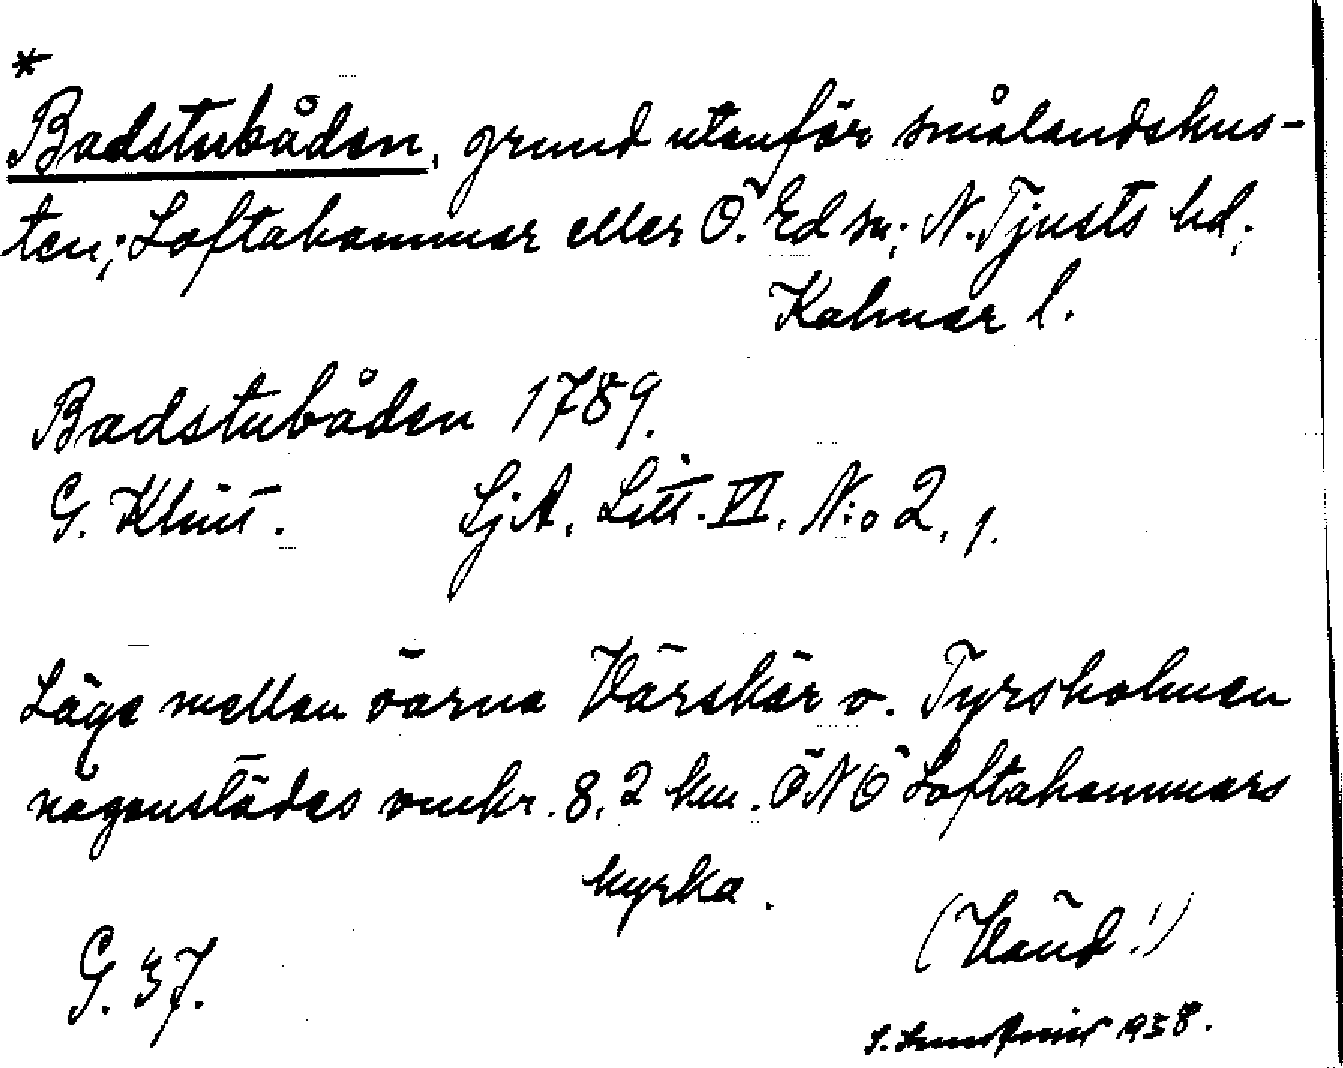 *
Badstubåden, grund utanför smålandskus-
ten; Loftahammar eller Ö. Ed sn; N. Tjusts hd;
Kalmar l.
Badstubåden 1789.
G. Klint. SjA, Litt. VI, N:o 2, 1.
Läge mellan öarna Värskär o. Tyrsholmen
någonstädes omkr. 8,2 km. ÖNÖ Loftahammars
kyrka.
(Vänd!)
G. 37.
1938.